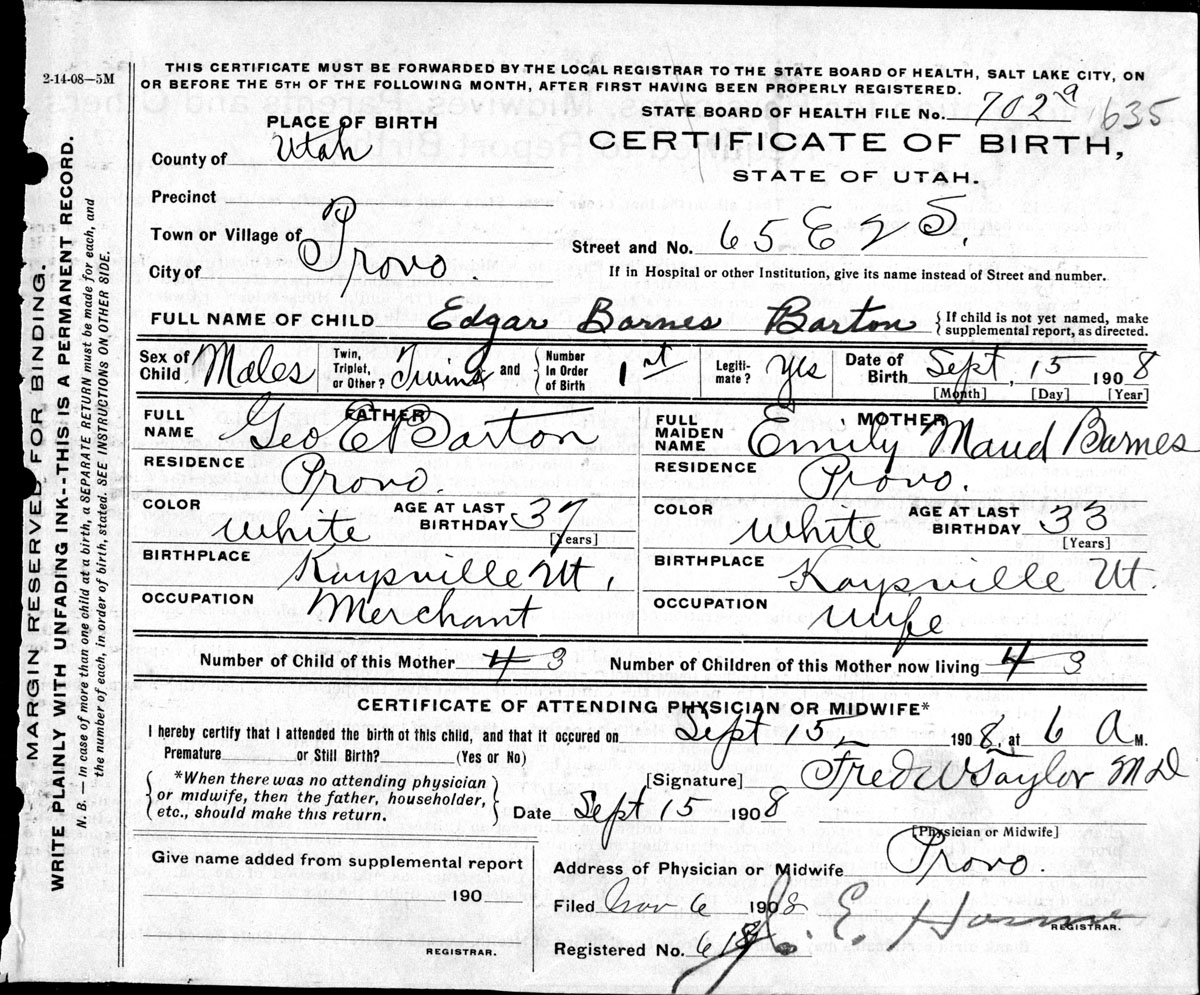 2-14-08—5M
THIS CERTIFICATE MUST BE FORWARDED BY THE LOCAL REGISTRAR TO THE STATE BOARD OF HEALTH, SALT LAKE CITY, ON
OR BEFORE THE 5TH OF THE FOLLOWING MONTH, AFTER FIRST HAVING BEEN PROPERLY REGISTERED.
STATE BOARD OF HEALTH FILE No. 702 a 635
PLACE OF BIRTH
CERTIFICATE OF BIRTH,
STATE OF UTAH.
County of Utah
Precinct
Town or Village of
City of Provo.
Street and No. 65 E 2 S.
If in Hospital or other Institution, give its name instead of Street and number.
FULL NAME OF CHILD Edgar Barnes Barton { If child is not yet named, make supplemental report, as directed.
Sex of Child Males Twin, Triplet, or Other? Twins and { Number In Order of Birth 1st Legiti-mate? Yes Date of Birth Sept, 15 1908
[Month] [Day] [Year]
FATHER
FULL NAME Geo E Barton
RESIDENCE Provo.
COLOR White AGE AT LAST BIRTHDAY 37
[Years]
BIRTHPLACE Kaysville Ut.
OCCUPATION Merchant
MOTHER
FULL MAIDEN NAME Emily Maud Barnes
RESIDENCE Provo.
COLOR White AGE AT LAST BIRTHDAY 33
[Years]
BIRTHPLACE Kaysville Ut.
OCCUPATION Wife
Number of Child of this Mother 4 3 Number of Children of this Mother now living 4 3
CERTIFICATE OF ATTENDING PHYSICIAN OR MIDWIFE*
I hereby certify that I attended the birth of this child, and that it occured on Sept 15 1908, at 6 A M.
Premature or Still Birth? (Yes or No)
{ *When there was no attending physician
or midwife, then the father, householder,
etc., should make this return. }
[Signature] Fred W Taylor MD
Date Sept 15 1908
[Physician or Midwife]
Give name added from supplemental report
190
REGISTRAR.
Address of Physician or Midwife Provo.
Filed Nov 6 1908
Registered No. 618
REGISTRAR.
MARGIN RESERVED FOR BINDING.
WRITE PLAINLY WITH UNFADING INK--THIS IS A PERMANENT RECORD.
N. B. — In case of more than one child at a birth, a SEPARATE RETURN must be made for each, and
the number of each, in order of birth, stated. SEE INSTRUCTIONS ON OTHER SIDE.